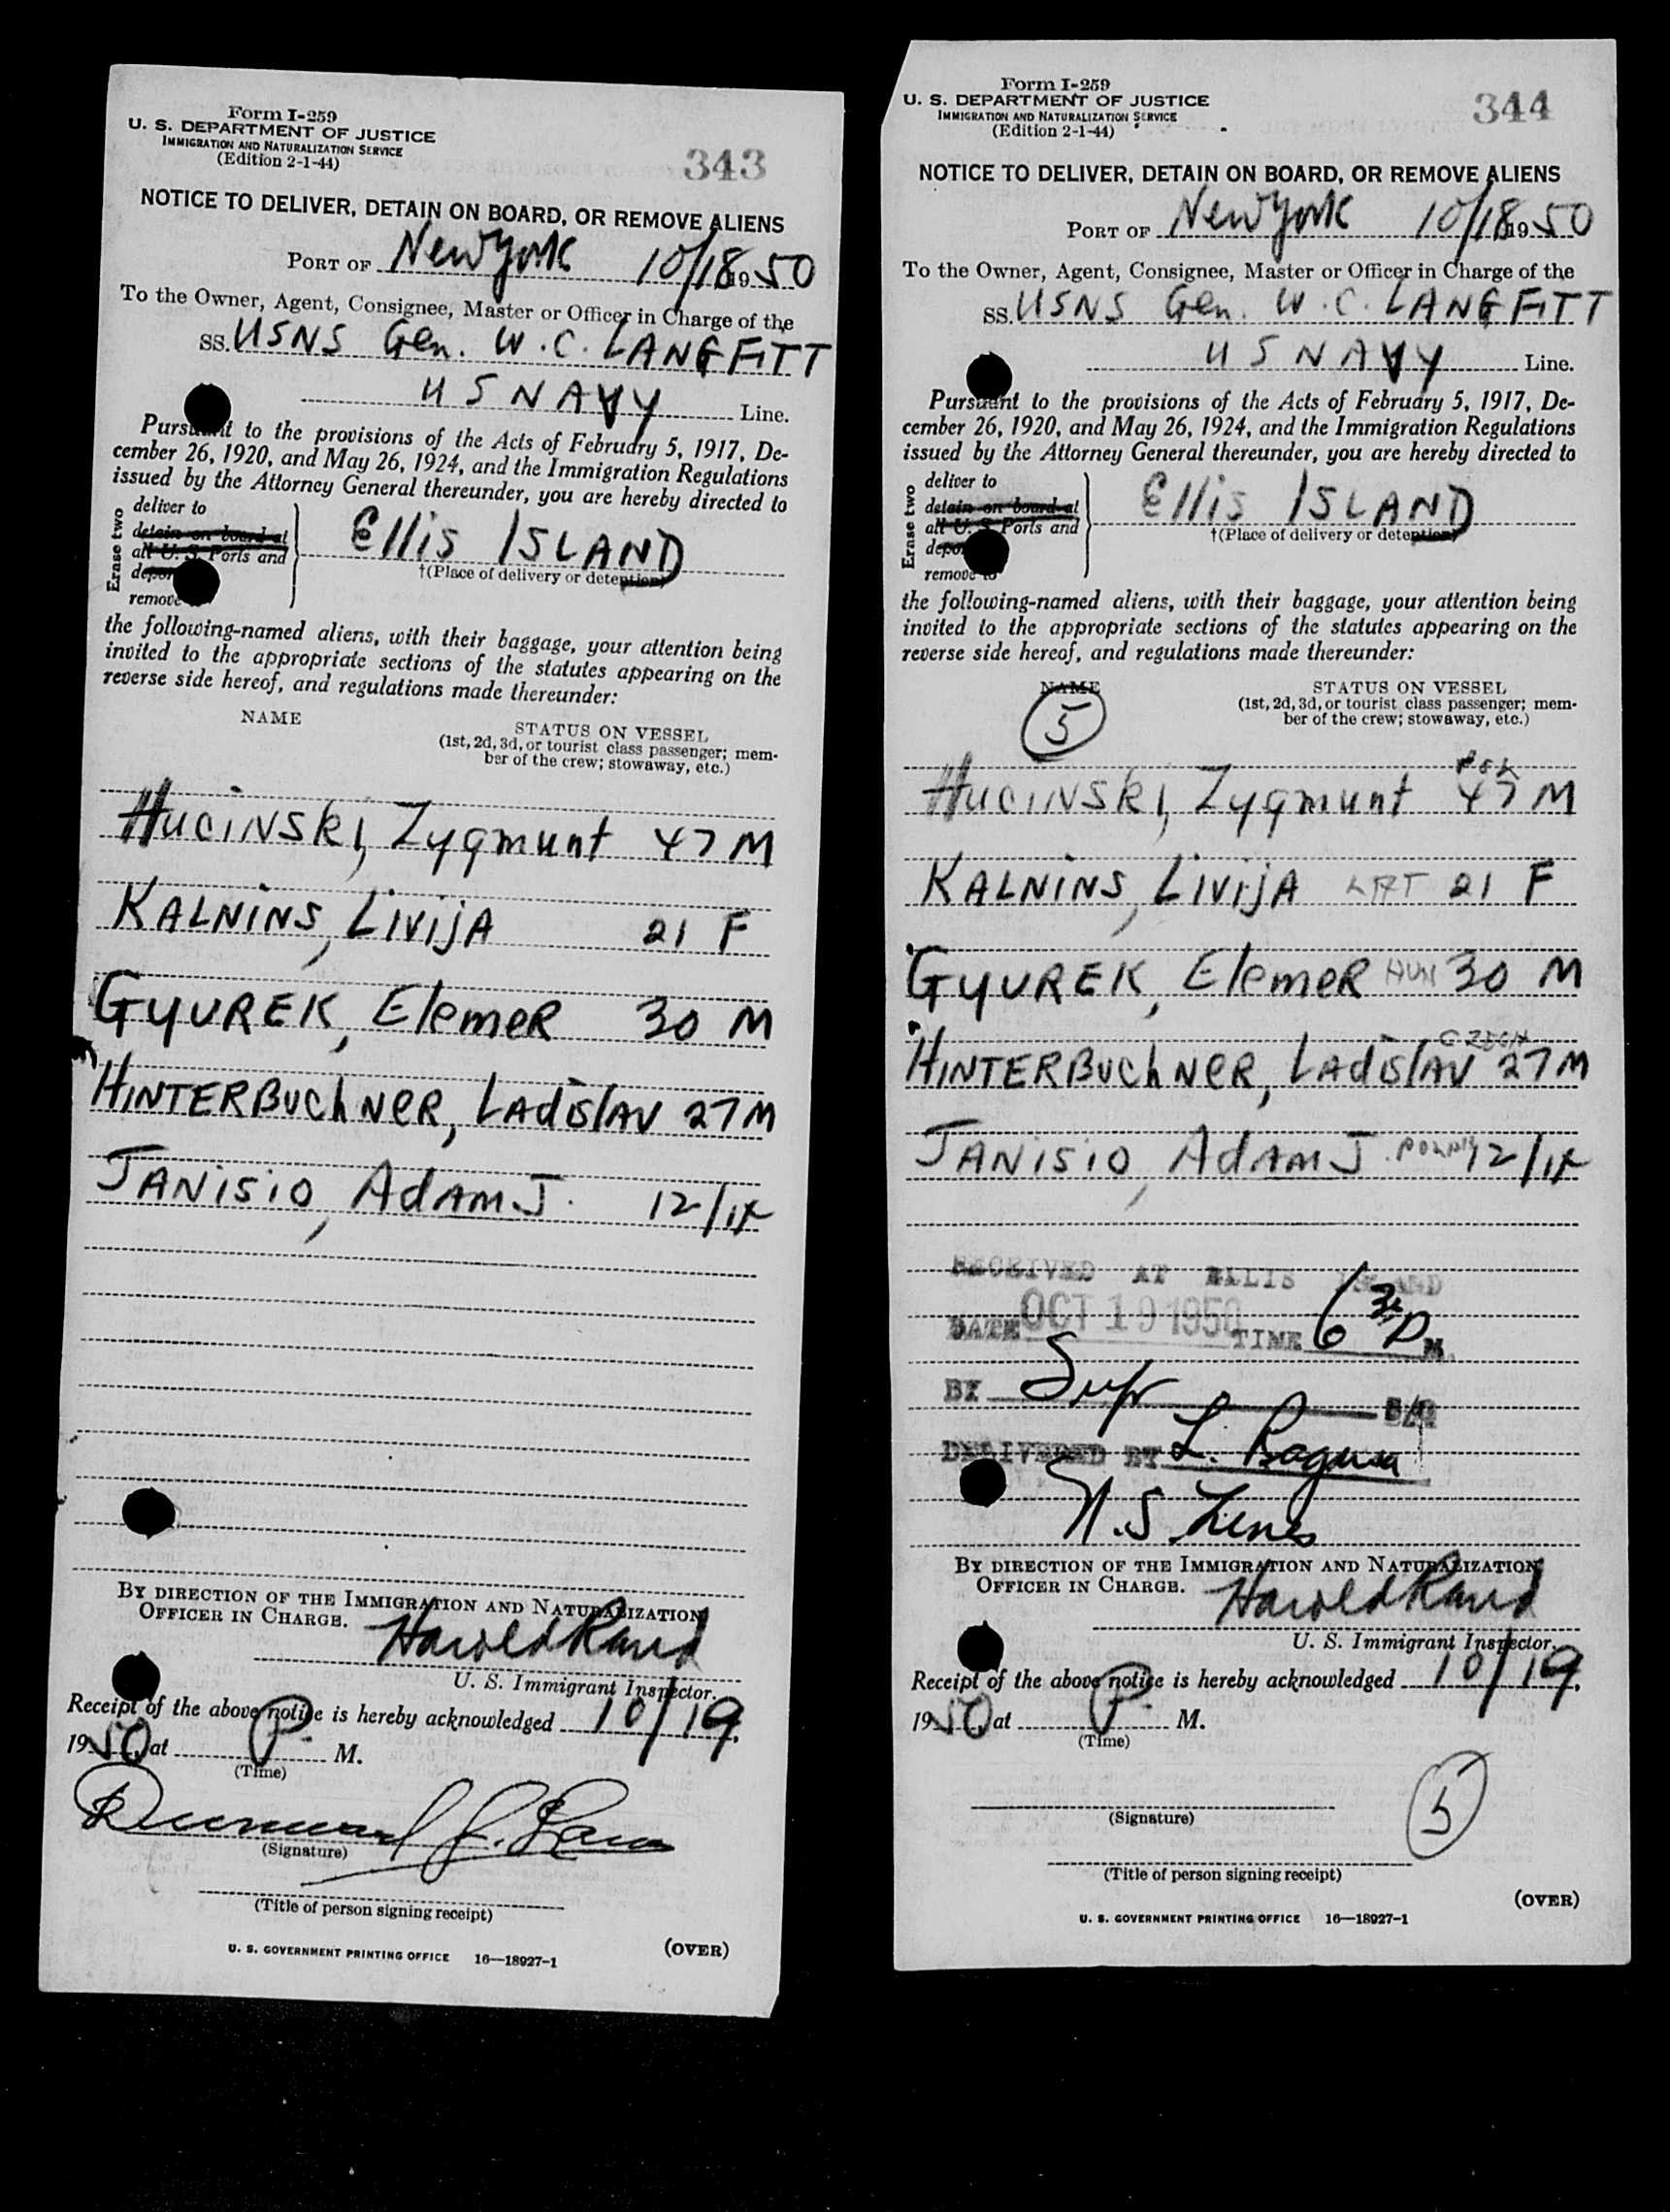 Form I-259
U. S. DEPARTMENT OF JUSTICE
IMMIGRATION AND NATURALIZATION SERVICE
(Edition 2-1-44)
343
NOTICE TO DELIVER, DETAIN ON BOARD, OR REMOVE ALIENS
PORT OF New York 10/18 1950
To the Owner, Agent, Consignee, Master or Officer in Charge of the
SS. USNS Gen. W. C. LANGFITT
U S NAVY Line.
Pursuant to the provisions of the Acts of February 5, 1917, De-
cember 26, 1920, and May 26, 1924, and the Immigration Regulations
issued by the Attorney General thereunder, you are hereby directed to
Erase two
deliver to
detain on board at
all U. S. Ports and
depor
remove
Ellis ISLAND
†(Place of delivery or detention)
the following-named aliens, with their baggage, your attention being
invited to the appropriate sections of the statutes appearing on the
reverse side hereof, and regulations made thereunder:
NAME
STATUS ON VESSEL
(1st, 2d, 3d, or tourist class passenger; mem-
ber of the crew; stowaway, etc.)
HUCINSKI, Zygmunt 47 M
KALNINS, LIVIJA 21 F
GYUREK, ElemeR 30 M
HINTERBUChNeR, LAdislAV 27 M
JANISIO, AdAM J. 12/
BY DIRECTION OF THE IMMIGRATION AND NATURALIZATION
OFFICER IN CHARGE.
Harold Rand
U. S. Immigrant Inspector.
Receipt of the above notice is hereby acknowledged 10/19,
1950, at P. M.
(Time)
(Signature)
(Title of person signing receipt)
U. S. GOVERNMENT PRINTING OFFICE 16—18927-1
(OVER)
Form I-259
U. S. DEPARTMENT OF JUSTICE
IMMIGRATION AND NATURALIZATION SERVICE
(Edition 2-1-44)
344
NOTICE TO DELIVER, DETAIN ON BOARD, OR REMOVE ALIENS
PORT OF New York 10/18 1950
To the Owner, Agent, Consignee, Master or Officer in Charge of the
SS. USNS Gen. W. C. LANGFITT
U S NAVY Line.
Pursuant to the provisions of the Acts of February 5, 1917, De-
cember 26, 1920, and May 26, 1924, and the Immigration Regulations
issued by the Attorney General thereunder, you are hereby directed to
Erase two
deliver to
detain on board at
all U. S. Ports and
depo
remove to
Ellis ISLAND
†(Place of delivery or detention)
the following-named aliens, with their baggage, your attention being
invited to the appropriate sections of the statutes appearing on the
reverse side hereof, and regulations made thereunder:
NAME
5
STATUS ON VESSEL
(1st, 2d, 3d, or tourist class passenger; mem-
ber of the crew; stowaway, etc.)
HUCINSKI, Zygmunt POL 47 M
KALNINS, LIVIJA LAT 21 F
GYUREK, ElemeR HUN 30 M
HINTERBUChNeR, LAdislAV CZECH 27 M
JANISIO, AdAM J. 12/
RECEIVED AT ELLIS ISLAND
DATE OCT 19 1950 TIME 6 30 P M.
BY
DELIVERED BY L.
Lines
BY DIRECTION OF THE IMMIGRATION AND NATURALIZATION
OFFICER IN CHARGE.
Harold Rand
U. S. Immigrant Inspector.
Receipt of the above notice is hereby acknowledged 10/19,
1950, at P. M.
(Time)
(Signature)
5
(Title of person signing receipt)
(OVER)
U. S. GOVERNMENT PRINTING OFFICE 16—18927-1